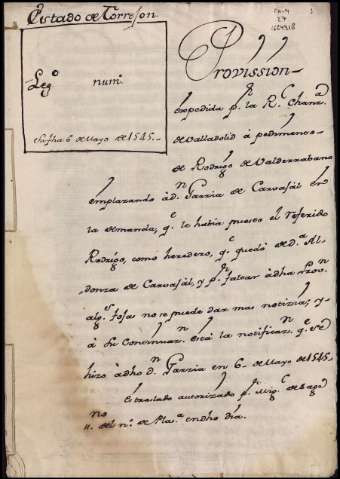 Estado de Torrejon.
Leg.º num.º
Su fha 6 de Mayo de 1545.
Provission
expedida p.r la R.l Chanz.a
de Valladolid à pedimento
de Rodrigo de Valderrabano
emplazando à d.n Garzia de Carvajal en
la demanda, q.e le havia puesto el referido
Rodrigo, como heredero, q.e quedó de d.a Al-
donza de Carvajal, y p.r faltar à dha Prov.n
alg.s fojas no se puede dar mas notizia, y
à su Continuaz.n está la notificaz.n q.e se
hizo à dho d.n Garzia en 6 de Mayo de 1545.
Es traslado autorizado p.r Mig.l de
no del n.º de Pla.a en dho dia.